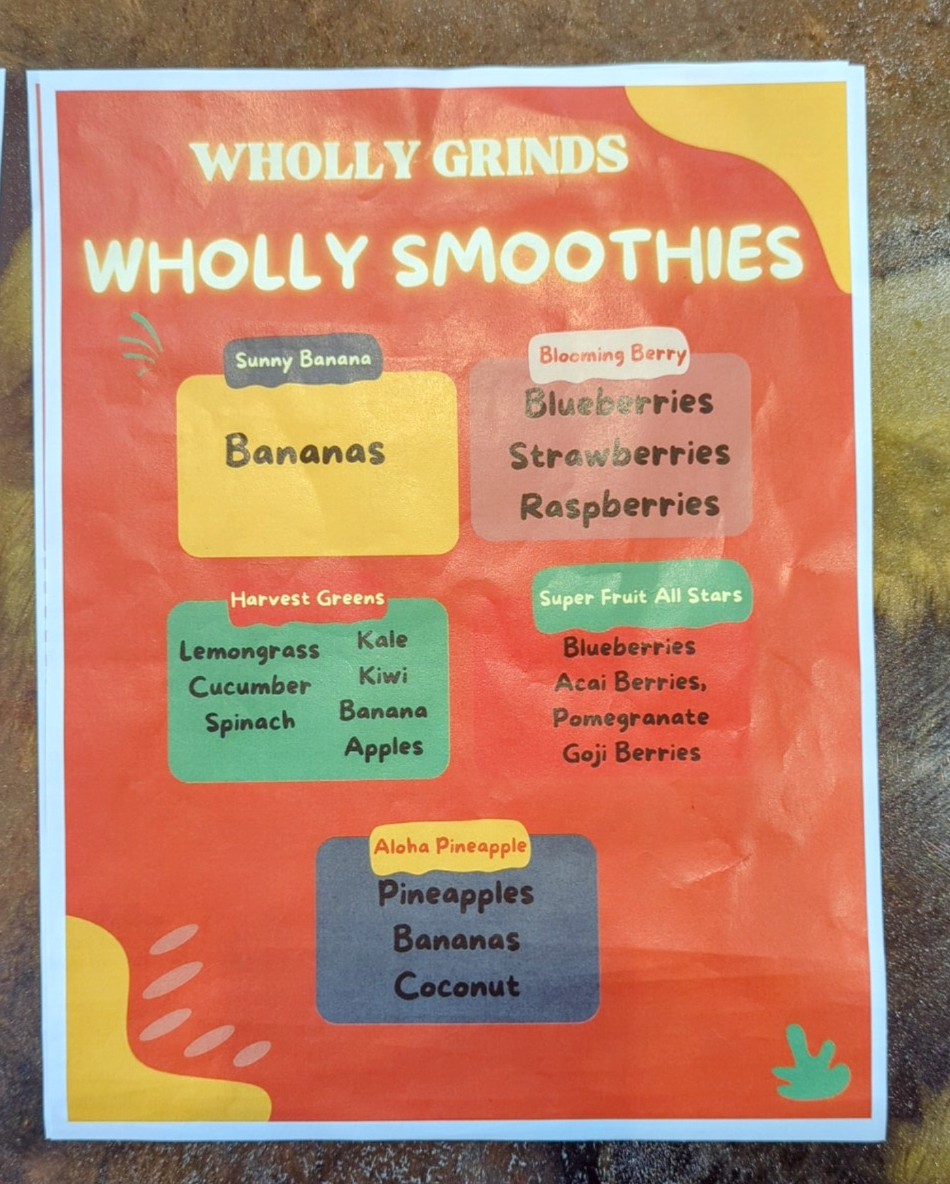 WHOLLY GRINDS
WHOLLY SMOOTHIES
Sunny Banana
Bananas
Blooming Berry
Blueberries
Strawberries
Raspberries
Harvest Greens
Lemongrass
Cucumber
Spinach
Kale
Kiwi
Banana
Apples
Super Fruit All Stars
Blueberries
Acai Berries,
Pomegranate
Goji Berries
Aloha Pineapple
Pineapples
Bananas
Coconut